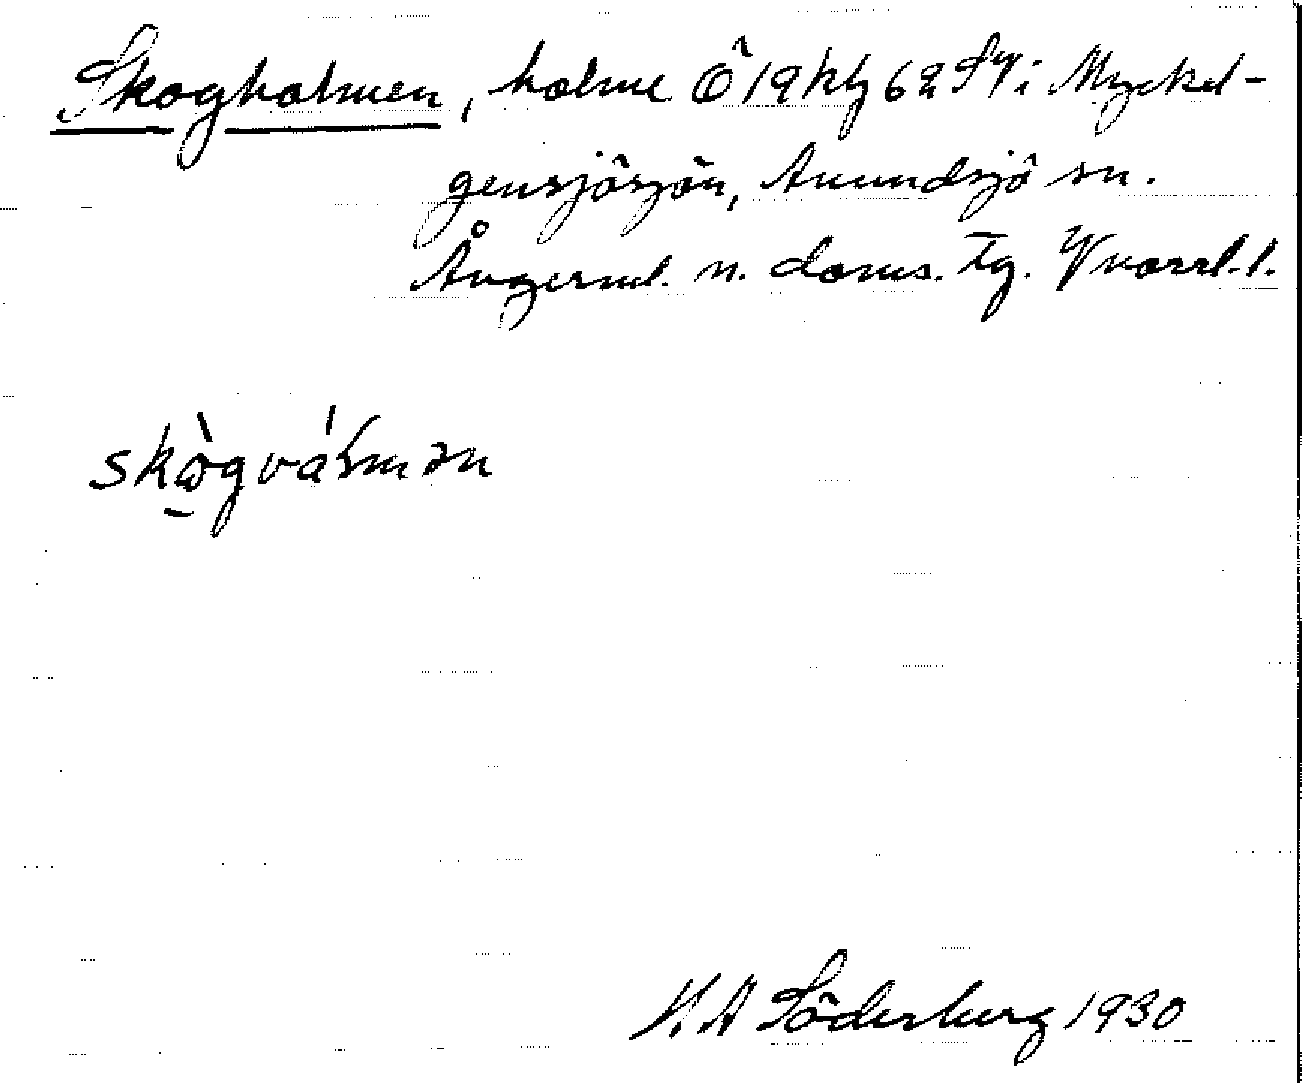 Skogholmen, holme Ö 19 kbl 62 SV i Myckel-
gensjösjön, Anundsjö sn.
Ångerml. n. doms. tg. Västernorrl. l.
skògválmən
H. A Söderberg 1930